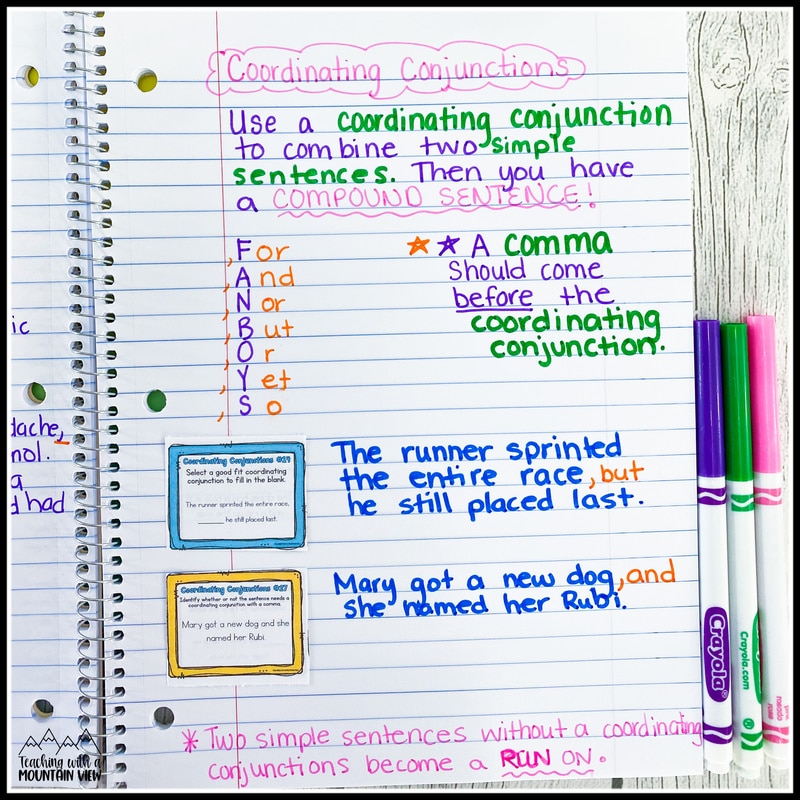 Coordinating Conjunctions
Use a coordinating conjunction
to combine two simple
sentences. Then you have
a COMPOUND SENTENCE!
,For
,And
,Nor
,But
,Or
,Yet
,So
☆ ☆ A comma
Should come
before the
coordinating
conjunction.
ic
dache,
nol.
a
d had
Coordinating Conjunctions #24
Select a good fit coordinating
conjunction to fill in the blank.
The runner sprinted the entire race,
______ he still placed last.
The runner sprinted
the entire race, but
he still placed last.
Coordinating Conjunctions #27
Identify whether or not the sentence needs a
coordinating conjunction with a comma.
Mary got a new dog and she
named her Rubi.
Mary got a new dog, and
she named her Rubi.
* Two simple sentences without a coordinating
conjunctions become a RUN ON.
Crayola®
Crayola.com
Teaching with a
MOUNTAIN VIEW